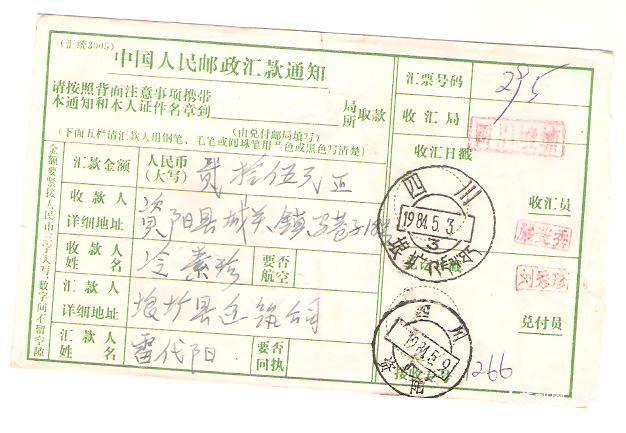 (汇统3005)
中国人民邮政汇款通知
请按照背面注意事项携带
本通知和本人证件名章到 局所 取款
(由兑付邮局填写)
(下面五栏请汇款人用钢笔、毛笔或圆珠笔用兰色或黑色写清楚)
金额要紧接人民币三字大写,数字间不留空隙
汇款金额 人民币(大写) 贰拾伍元正
收款人详细地址 资阳县城关镇
收款人姓名 冷素珍 要否航空
汇款人详细地址 县建筑公司
汇款人姓名 雷代阳 要否回执
汇票号码 295
收汇局
收汇日戳
收汇员
四川
1984.5.3
3
刘秀珍
兑付员
四川
1984.5.9
1266